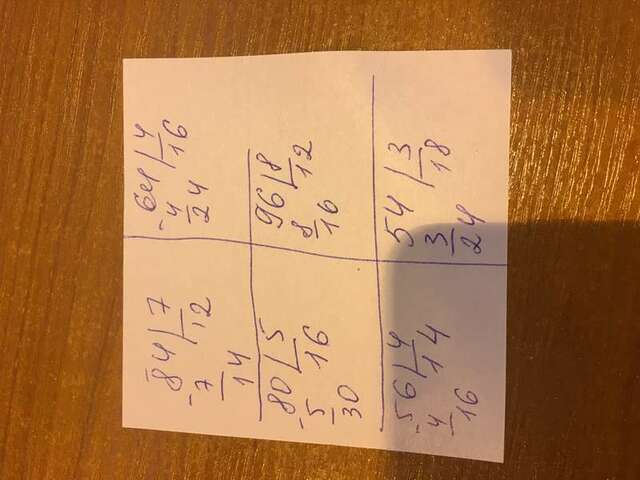 -84 7
-7 12
14
-64 4
4 16
24
-80 5
5 16
30
96 8
8 12
16
-56 4
4 14
16
54 3
3 18
24